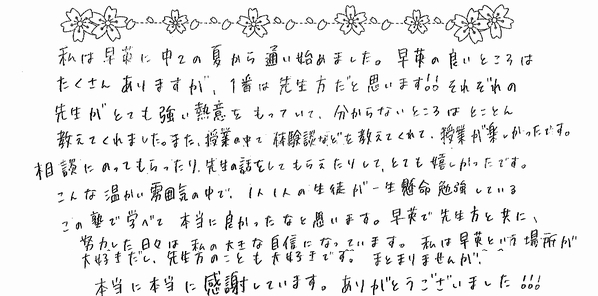 私は早英に中2の夏から通い始めました。早英の良いところは
たくさんありますが、1番は先生方だと思います!! それぞれの
先生がとても強い熱意をもっていて、分からないところはとことん
教えてくれました。また、授業の中で体験談などを教えてくれて、授業が楽しかったです。
相談にのってもらったり、先生の話をしてもらえたりして、とても嬉しかったです。
こんな温かい雰囲気の中で、1人1人の生徒が一生懸命勉強している
この塾で学べて本当に良かったなと思います。早英で先生方と共に、
努力した日々は私の大きな自信になっています。私は早英という場所が
大好きだし、先生方のことも大好きです。まとまりませんが、
本当に本当に感謝しています。ありがとうございました!!!